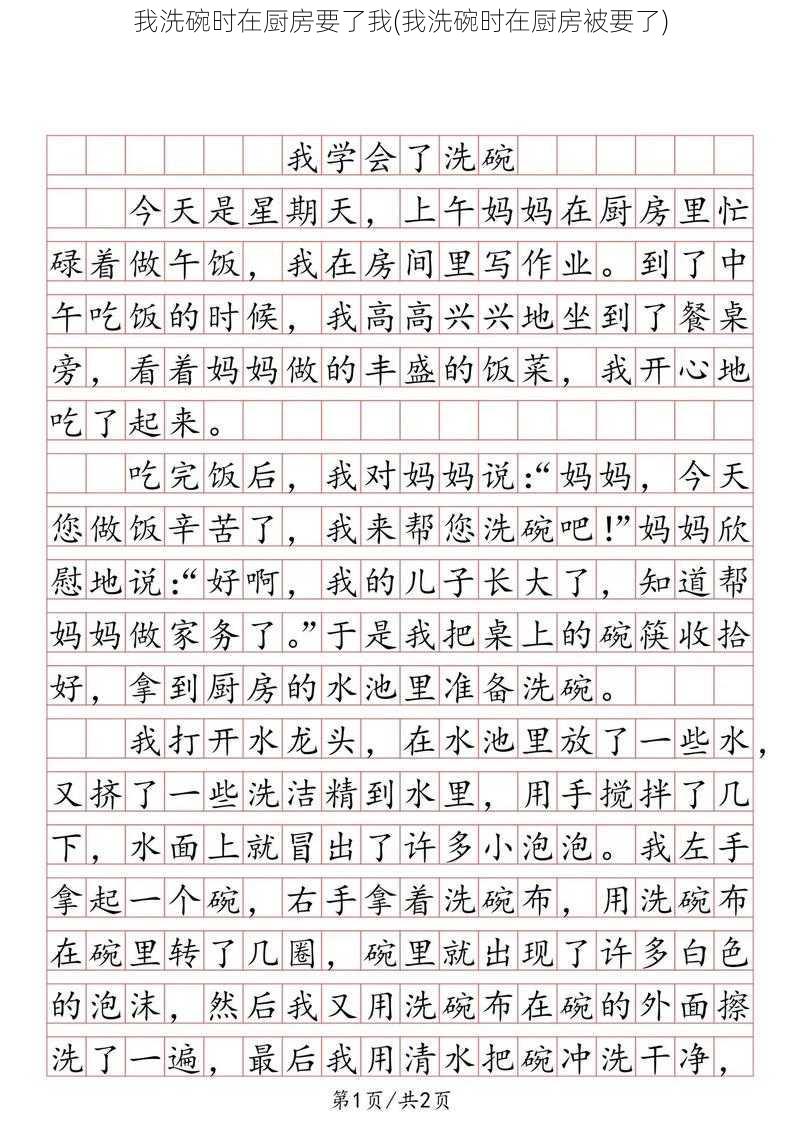 我洗碗时在厨房要了我(我洗碗时在厨房被要了)
我学会了洗碗
今天是星期天，上午妈妈在厨房里忙
碌着做午饭，我在房间里写作业。到了中
午吃饭的时候，我高高兴兴地坐到了餐桌
旁，看着妈妈做的丰盛的饭菜，我开心地
吃了起来。
吃完饭后，我对妈妈说：“妈妈，今天
您做饭辛苦了，我来帮您洗碗吧！”妈妈欣
慰地说：“好啊，我的儿子长大了，知道帮
妈妈做家务了。”于是我把桌上的碗筷收拾
好，拿到厨房的水池里准备洗碗。
我打开水龙头，在水池里放了一些水，
又挤了一些洗洁精到水里，用手搅拌了几
下，水面上就冒出了许多小泡泡。我左手
拿起一个碗，右手拿着洗碗布，用洗碗布
在碗里转了几圈，碗里就出现了许多白色
的泡沫，然后我又用洗碗布在碗的外面擦
洗了一遍，最后我用清水把碗冲洗干净，
第1页/共2页